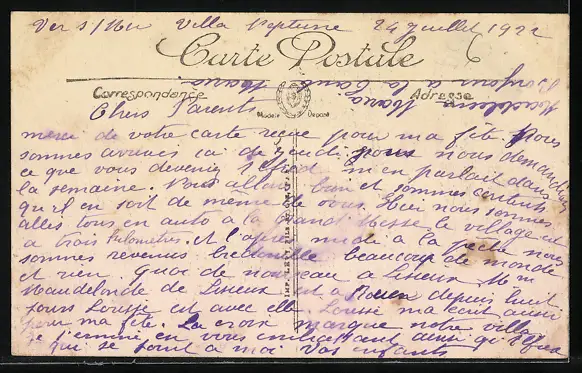 Ver s/Mer Villa Neptune 24 Juillet 1922
Carte Postale
Correspondance
Adresse
Modèle Déposé
Chers Parents
merci de votre carte reçue pour ma fête. Nous
sommes arrivés ça de jeudi. nous nous demandions
ce que vous deveniez Alfred m'en parlait dans
la semaine. Vous allez bien et sommes contents
qu'il en soit de même de vous. Hier nous sommes
allés tous en auto à la Grand Messe le village est
à trois kilomètres. et l'après midi à la pêche nous
sommes revenus bredouille beaucoup de monde
et rien. Quoi de nouveau à Lisieux
de Lisieux est à Rouen depuis huit
jours est avec elle. m'a écrit aussi
pour ma fête. La croix marque notre villa
je termine en vous embrassant ainsi qu'Alfred
qui se joint à moi Vos enfants
à la santé
Maria